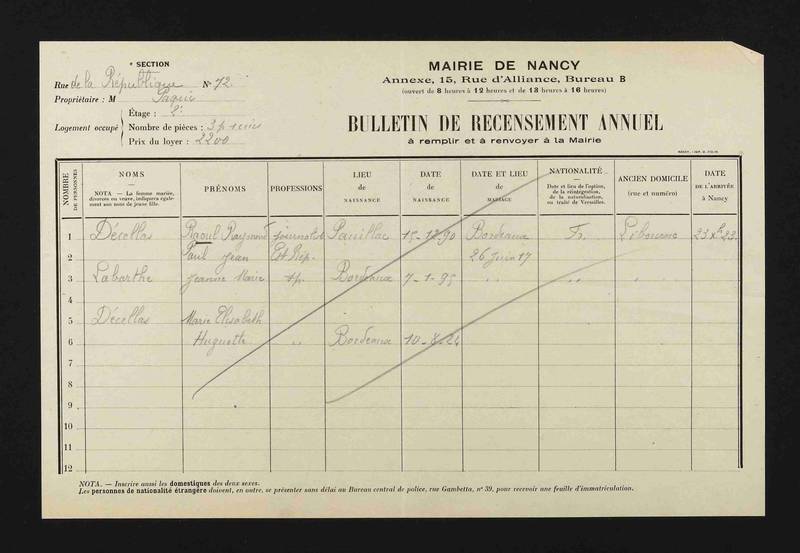 * SECTION
Rue de la République N° 72
Propriétaire : M
Étage : 2e
Logement occupé
Nombre de pièces : 3 p
Prix du loyer : 2200
MAIRIE DE NANCY
Annexe, 15, Rue d'Alliance, Bureau B
(ouvert de 8 heures à 12 heures et de 13 heures à 16 heures)
BULLETIN DE RECENSEMENT ANNUEL
à remplir et à renvoyer à la Mairie
NOMBRE DE PERSONNES
NOMS
NOTA — La femme mariée, divorcée ou veuve, indiquera également son nom de jeune fille.
PRÉNOMS
PROFESSIONS
LIEU de NAISSANCE
DATE de NAISSANCE
DATE ET LIEU de MARIAGE
NATIONALITÉ
Date et lieu de l'option, de la réintégration, de la naturalisation, ou traité de Versailles.
ANCIEN DOMICILE
(rue et numéro)
DATE DE L'ARRIVÉE à Nancy
1 Décellas Raoul Raymond journaliste Pauillac 15-12-90 Bordeaux Fr. Libourne 23 Xbre 23
2 Paul Jean Est Rép. 26 Juin 17
3 Labarthe Jeanne Marie sp. Bordeaux 7-1-95 " " "
4
5 Décellas Marie Elisabeth
6 Huguette " Bordeaux 10-8-24
7
8
9
10
11
12
NOTA. — Inscrire aussi les domestiques des deux sexes.
Les personnes de nationalité étrangère doivent, en outre, se présenter sans délai au Bureau central de police, rue Gambetta, n° 39, pour recevoir une feuille d'immatriculation.